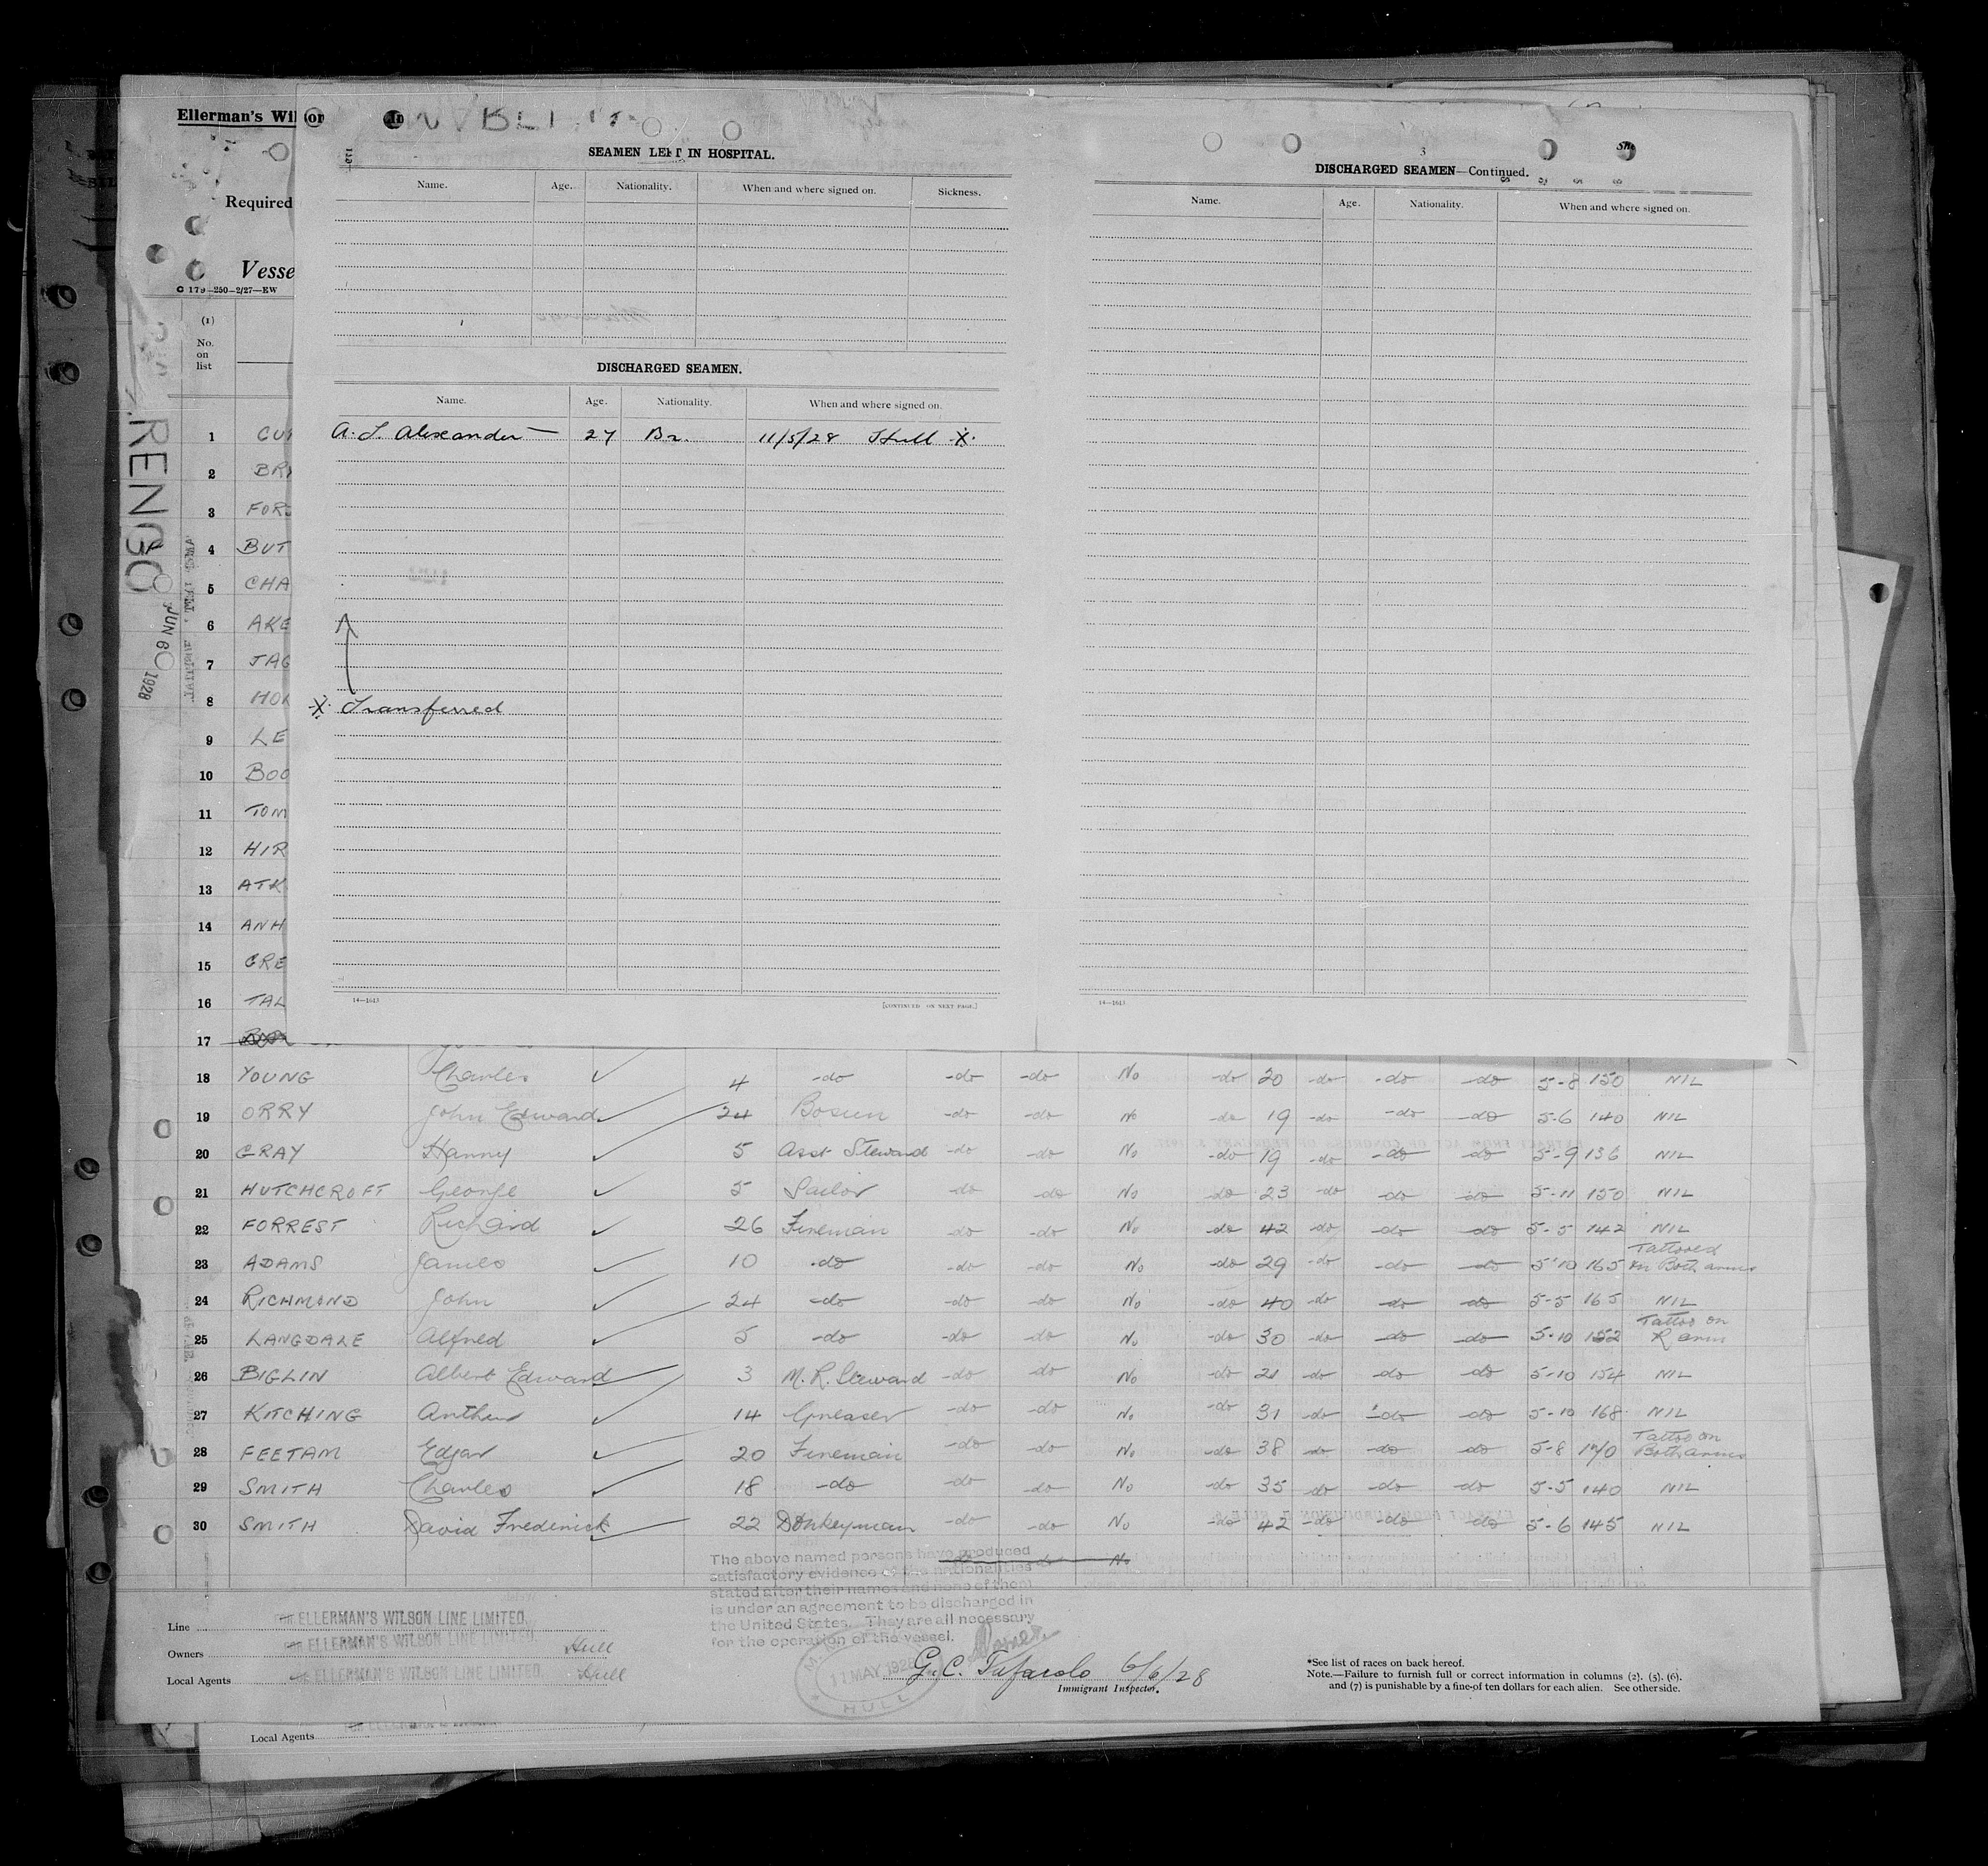 Ellerman's Wil
SEAMEN LEFT IN HOSPITAL.
Name. Age. Nationality. When and where signed on. Sickness.
3
DISCHARGED SEAMEN—Continued.
Name. Age. Nationality. When and where signed on.
Required
Vesse
C 179—250—2/27—EW
(1)
No.
on
list
DISCHARGED SEAMEN.
Name. Age. Nationality. When and where signed on.
A. J. Alexander — 27 Br. 11/5/28 Hull X
X Transferred
14—1613 [CONTINUED ON NEXT PAGE.] 14—1613
RENGO
JUN 6 1928
1 CU
2 BR
3 FOR
4 BUT
5 CHA
6 AKE
7 JAG
8 MO
9 LE
10 BOO
11 TOM
12 HIR
13 ATK
14 ANH
15 GRE
16 TAL
17
18 YOUNG Charles 4 -do -do -do No -do 20 -do -do -do 5-8 150 NIL
19 ORRY John Edward 24 Bosun -do -do No -do 19 -do -do -do 5-6 140 NIL
20 GRAY Hanny 5 Asst Steward -do -do No -do 19 -do -do -do 5-9 136 NIL
21 HUTCHCROFT George 5 Sailor -do -do No -do 23 -do -do -do 5-11 150 NIL
22 FORREST Richard 26 Fireman -do -do No -do 42 -do -do -do 5-5 142 NIL
23 ADAMS James 10 -do -do -do No -do 29 -do -do -do 5-10 165 Tattooed on Both arms
24 RICHMOND John 24 -do -do -do No -do 40 -do -do -do 5-5 165 NIL
25 LANGDALE Alfred 5 -do -do -do No -do 30 -do -do -do 5-10 152 Tattoo on R arm
26 BIGLIN Albert Edward 3 M.R. Steward -do -do No -do 21 -do -do -do 5-10 154 NIL
27 KITCHING Arthur 14 Greaser -do -do No -do 31 -do -do -do 5-10 168 NIL
28 FEETAM Edgar 20 Fireman -do -do No -do 38 -do -do -do 5-8 170 Tattoo on Both arms
29 SMITH Charles 18 -do -do -do No -do 35 -do -do -do 5-5 140 NIL
30 SMITH David Frederick 22 Donkeyman -do -do No -do 42 -do -do -do 5-6 145 NIL
The above named persons have produced
satisfactory evidence of the nationalities
stated after their names and none of them
is under an agreement to be discharged in
the United States. They are all necessary
for the operation of the vessel.
Line ELLERMAN'S WILSON LINE LIMITED.
Owners ELLERMAN'S WILSON LINE LIMITED. Hull
Local Agents ELLERMAN'S WILSON LINE LIMITED. Hull
11 MAY 1928
HULL
G. C. Tufarolo 6/6/28
Immigrant Inspector.
*See list of races on back hereof.
Note.—Failure to furnish full or correct information in columns (2), (5), (6),
and (7) is punishable by a fine of ten dollars for each alien. See other side.
Local Agents